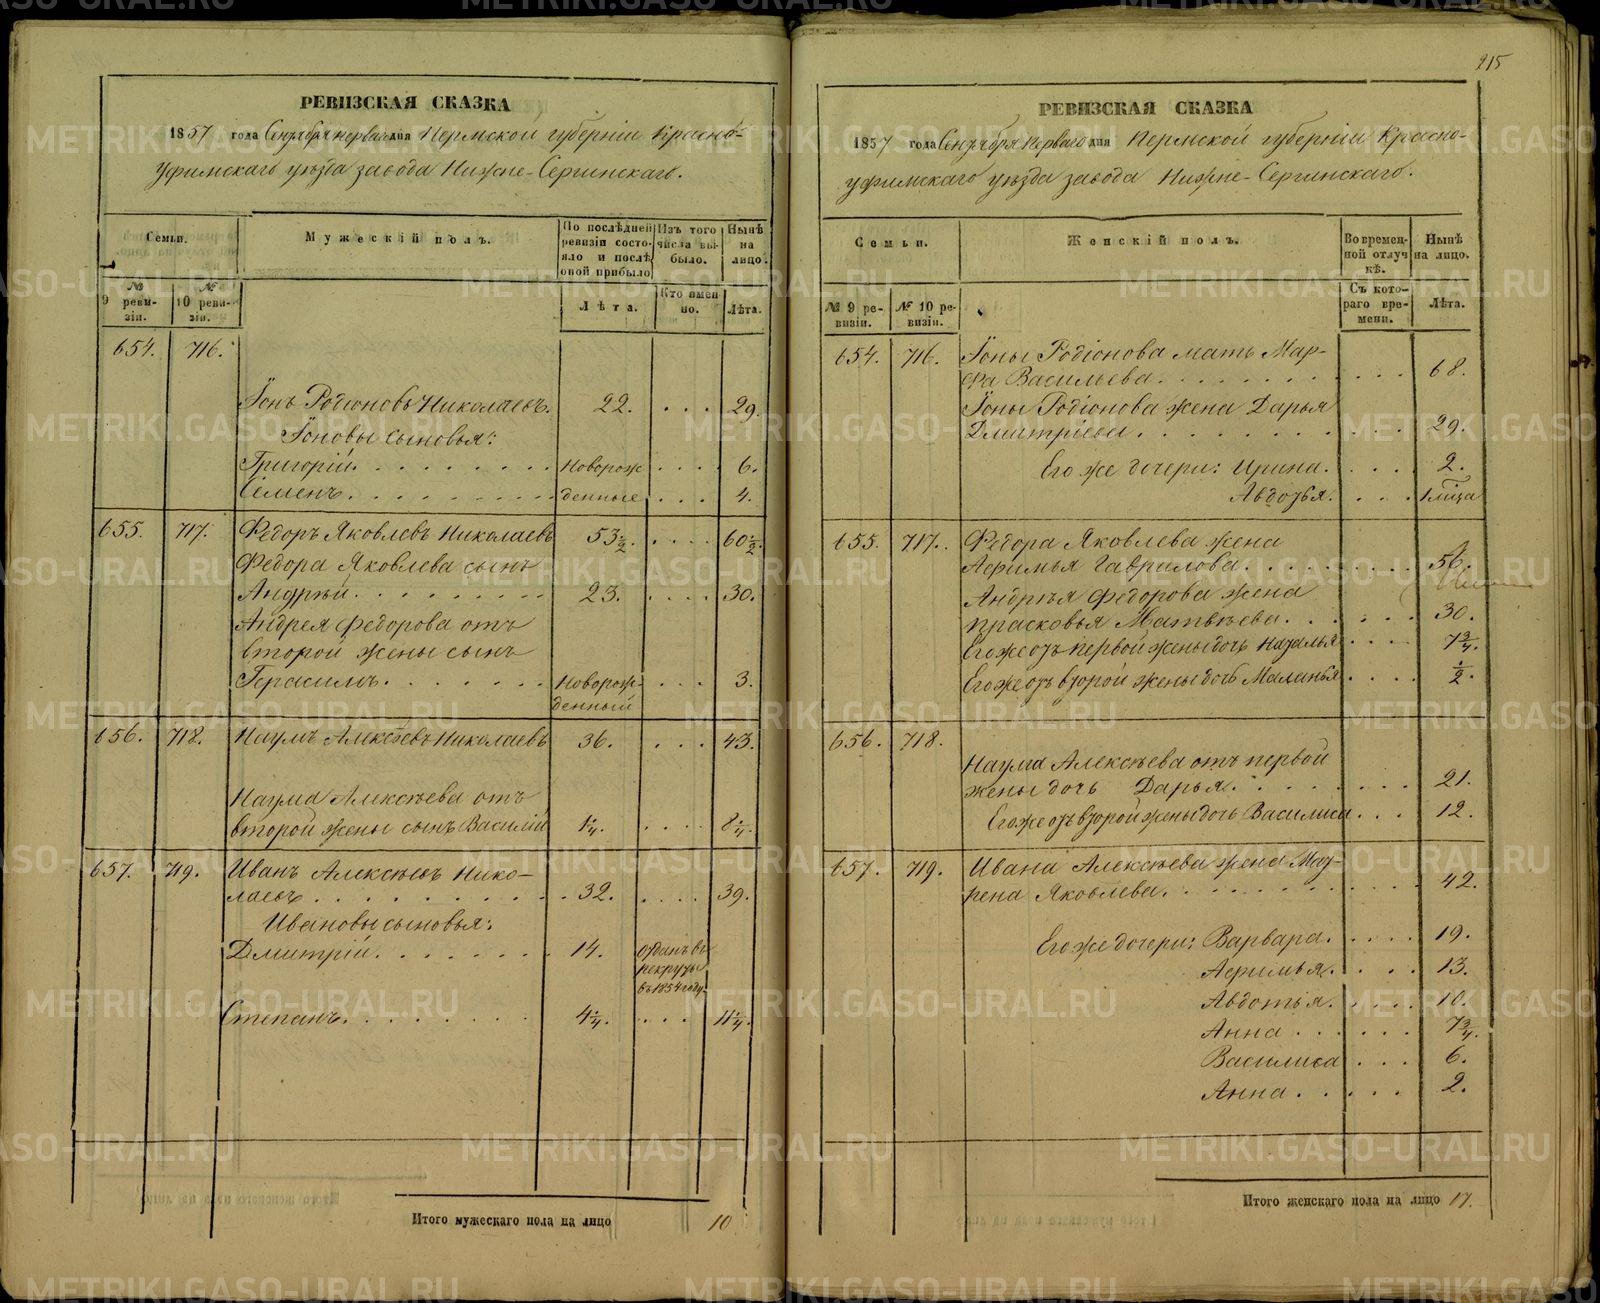 РЕВИЗСКАЯ СКАЗКА
1857 года Сентября перваго дня Пермской губерніи Красно-
уфимскаго уѣзда завода Нижне-Сергинскаго.
Семьи.
Мужескій полъ.
По послѣдней ревизіи состояло и послѣ оной прибыло
Изъ того числа выбыло.
Нынѣ на лицо.
№ 9 ревизіи.
№ 10 ревизіи.
Лѣта.
Кто именно.
Лѣта.
654. 716.
Іонъ Родіоновъ Николаевъ. 22. . . . 29.
Іоновы сыновья:
Григорій. Новорож- 6.
Семенъ. денные 4.
655. 717. Федоръ Яковлевъ Николаевъ 53 1/2. 60 1/2.
Федора Яковлева сынъ
Андрѣй. 23. 30.
Андрея Федорова отъ
второй жены сынъ
Герасимъ. Новорож- 3.
денный
656. 718. Наумъ Алексѣевъ Николаевъ 36. 43.
Наума Алексѣева отъ
второй жены сынъ Василій 1 1/4. 8 1/4.
657. 719. Иванъ Алексѣевъ Нико-
лаевъ 32. 39.
Ивановы сыновья:
Дмитрій. 14. отданъ въ
рекруты
въ 1854 году.
Степанъ. 4 1/4. 11 1/4.
Итого мужескаго пола на лицо 10
215
РЕВИЗСКАЯ СКАЗКА
1857 года Сентября перваго дня Пермской губерніи Красно-
уфимскаго уѣзда завода Нижне-Сергинскаго.
Семьи.
Женскій полъ.
Во временной отлучкѣ.
Нынѣ на лицо.
№ 9 ревизіи.
№ 10 ревизіи.
Съ котораго времени.
Лѣта.
654. 716. Іоны Родіонова мать Мар-
фа Васильева. 68.
Іоны Родіонова жена Дарья
Дмитріева. 29.
Его же дочери: Ирина. 2.
Авдотья. 1 м-ца
655. 717. Федора Яковлева жена
Афимья Гаврилова. 56.
Андрѣя Федорова жена
Прасковья Матвѣева. 30.
Его же отъ первой жены дочь Наталья 7 3/4.
Его же отъ второй жены дочь Маланья 1/2.
656. 718.
Наума Алексѣева отъ первой
жены дочь Дарья. 21.
Его же отъ второй жены дочь Василиса 12.
657. 719. Ивана Алексѣева жена Мат-
рена Яковлева. 42.
Его же дочери: Варвара. 19.
Афимья. 13.
Авдотья. 10.
Анна 7 3/4.
Василиса 6.
Анна 2.
Итого женскаго пола на лицо 17.
METRIKI.GASO-URAL.RU